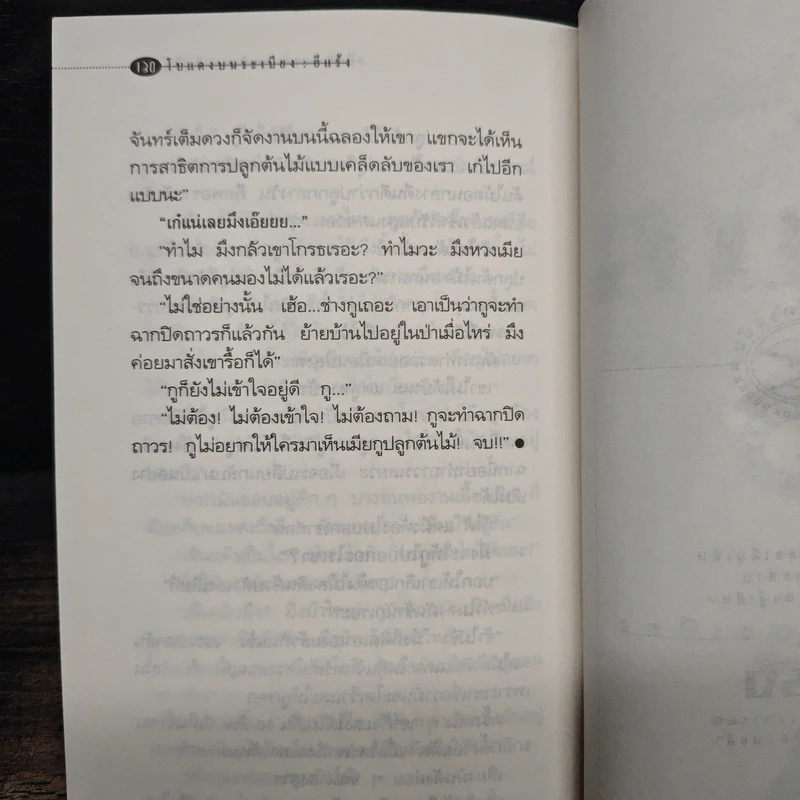 130 โบแดงบนระเบียง : อีแร้ง
จันทร์เต็มดวงก็จัดงานบนนี้ฉลองให้เขา แขกจะได้เห็น
การสาธิตการปลูกต้นไม้แบบเคล็ดลับของเรา เก๋ไปอีก
แบบนะ”
“เก๋แน่เลยมึงเอ๊ยยย...”
“ทำไม มึงกลัวเขาโกรธเรอะ? ทำไมวะ มึงหวงเมีย
จนถึงขนาดคนมองไม่ได้แล้วเรอะ?”
“ไม่ใช่อย่างนั้น เฮ้อ...ช่างกูเถอะ เอาเป็นว่ากูจะทำ
ฉากปิดถาวรก็แล้วกัน ย้ายบ้านไปอยู่ในป่าเมื่อไหร่ มึง
ค่อยมาสั่งเขารื้อก็ได้”
“กูก็ยังไม่เข้าใจอยู่ดี กู...”
“ไม่ต้อง! ไม่ต้องเข้าใจ! ไม่ต้องถาม! กูจะทำฉากปิด
ถาวร! กูไม่อยากให้ใครมาเห็นเมียกูปลูกต้นไม้! จบ!!” ●